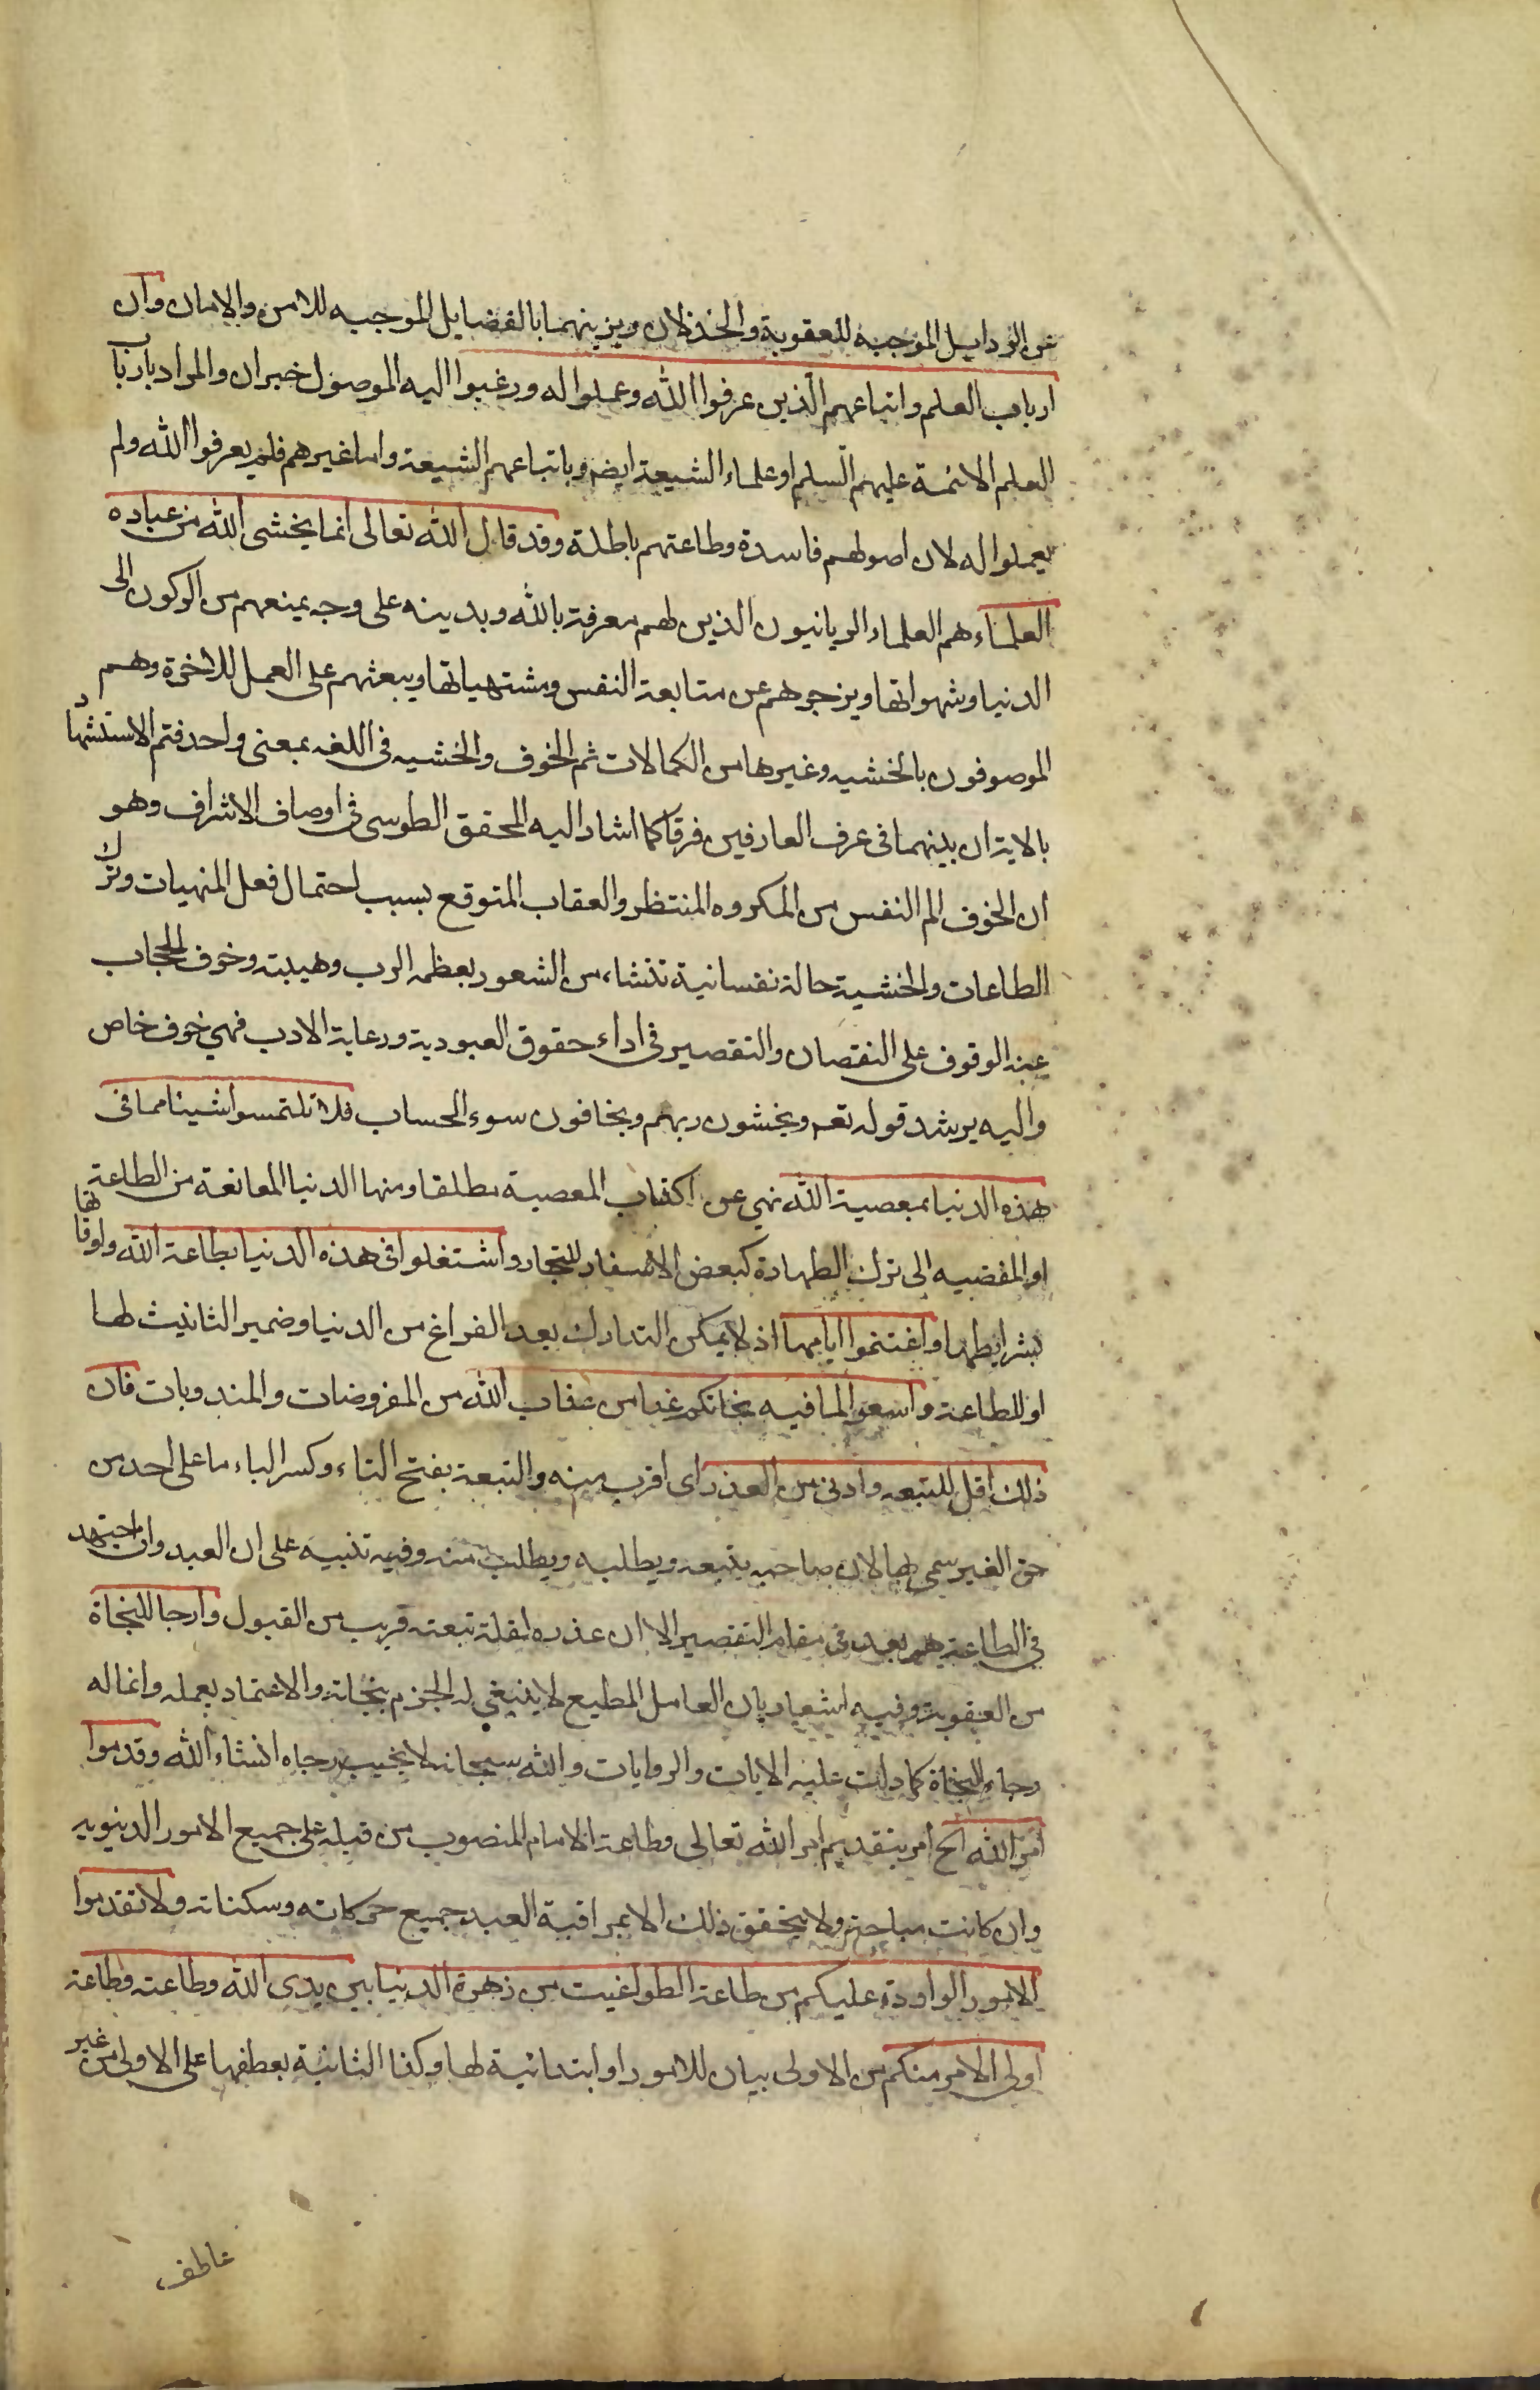 عن الرذايل الموجبة للعقوبة والخذلان ويزينهما بالفضايل الموجبه للامن والامان وان
ارباب العلم واتباعهم الّذين عرفوا الله وعملوا له ورغبوا اليه الموصول خبر ان والمراد بارباب
العلم الائمة عليهم السلم او علماء الشيعة ايضم وباتباعهم الشيعة واما غيرهم فلم يعرفوا الله ولم
يعملوا له لان اصولهم فاسدة وطاعتهم باطلة وقد قال الله تعالى انما يخشى الله من عباده
العلماء هم العلماء الربانيون الذين لهم معرفة بالله وبدينه على وجه يمنعهم من الركون الى
الدنيا وشهواتها ويزجرهم عن متابعة النفس ومشتهياتها ويبعثهم على العمل للاخرة وهم
الموصوفون بالخشيه وغيرها من الكمالات ثم الخوف والخشيه فى اللغه بمعنى واحد فتم الاستشهاد
بالاية ان بينهما فى عرف العارفين فرقا كما اشار اليه المحقق الطوسى فى اوصاف الاشراف وهو
ان الخوف الم النفس من المكروه المنتظر والعقاب المتوقع بسبب احتمال فعل المنهيات وترك
الطاعات والخشية حالة نفسانية تنشاء من الشعور بعظمه الرب وهيبته وخوف الحجاب
عند الوقوف على النقصان والتقصير فى اداء حقوق العبودية ورعاية الادب فهي خوف خاص
واليه يرشد قوله تعم ويخشون ربهم ويخافون سوء الحساب فلا تلتمسوا شيئا مما فى
هذه الدنيا بمعصية الله نهي عن اكتساب المعصية مطلقا ومنها الدنيا المانعة من الطاعة
او المفضيه الى ترك الطهارة كبعض الاسفار للتجار واشتغلوا فى هذه الدنيا بطاعة الله واوقاتها
بشرايطها واغتنموا ايامها اذ لا يمكن التدارك بعد الفراغ من الدنيا وضمير التانيث لها
او للطاعة واسعوا لما فيه نجاتكم غدا من عذاب الله من المفروضات والمندوبات فان
ذلك اقل للتبعه وادنى من العذر اى اقرب منه والتبعة بفتح التاء وكسر الباء ما على احد من
حق الغير سمى بها لان صاحبه يتبعه ويطلبه ويطلب منه وفيه تنبيه على ان العبد وان اجتهد
فى الطاعة هو بعد فى مقام التقصير الا ان عذره لقلة تبعته قريب من القبول وارجا للنجاة
من العقوبة وفيه اشعار بان العامل المطيع لا ينبغي له الجزم بنجاته والاعتماد بعمله وانما له
رجاء النجاة كما دلت عليه الايات والروايات والله سبحانه لا يخيب رجاه انشاء الله وقدموا
امر الله الخ امر بتقديم امر الله تعالى وطاعة الامام المنصوب من قبله على جميع الامور الدنيويه
وان كانت مباحة ولا يتحقق ذلك الا بمراقبة العبد جميع حركاته وسكناته ولا تقدموا
الامور الواردة عليكم من طاعة الطواغيت من زهرة الدنيا بين يدى الله وطاعته وطاعة
اولى الامر منكم من الاولى بيان للامور او ابتدائية لها وكذا الثانية بعطفها على الاولى من غير
عاطف